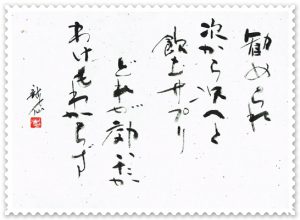 勧められ
次から次へと
飲むサプリ
どれが効いたか
わけもわからず